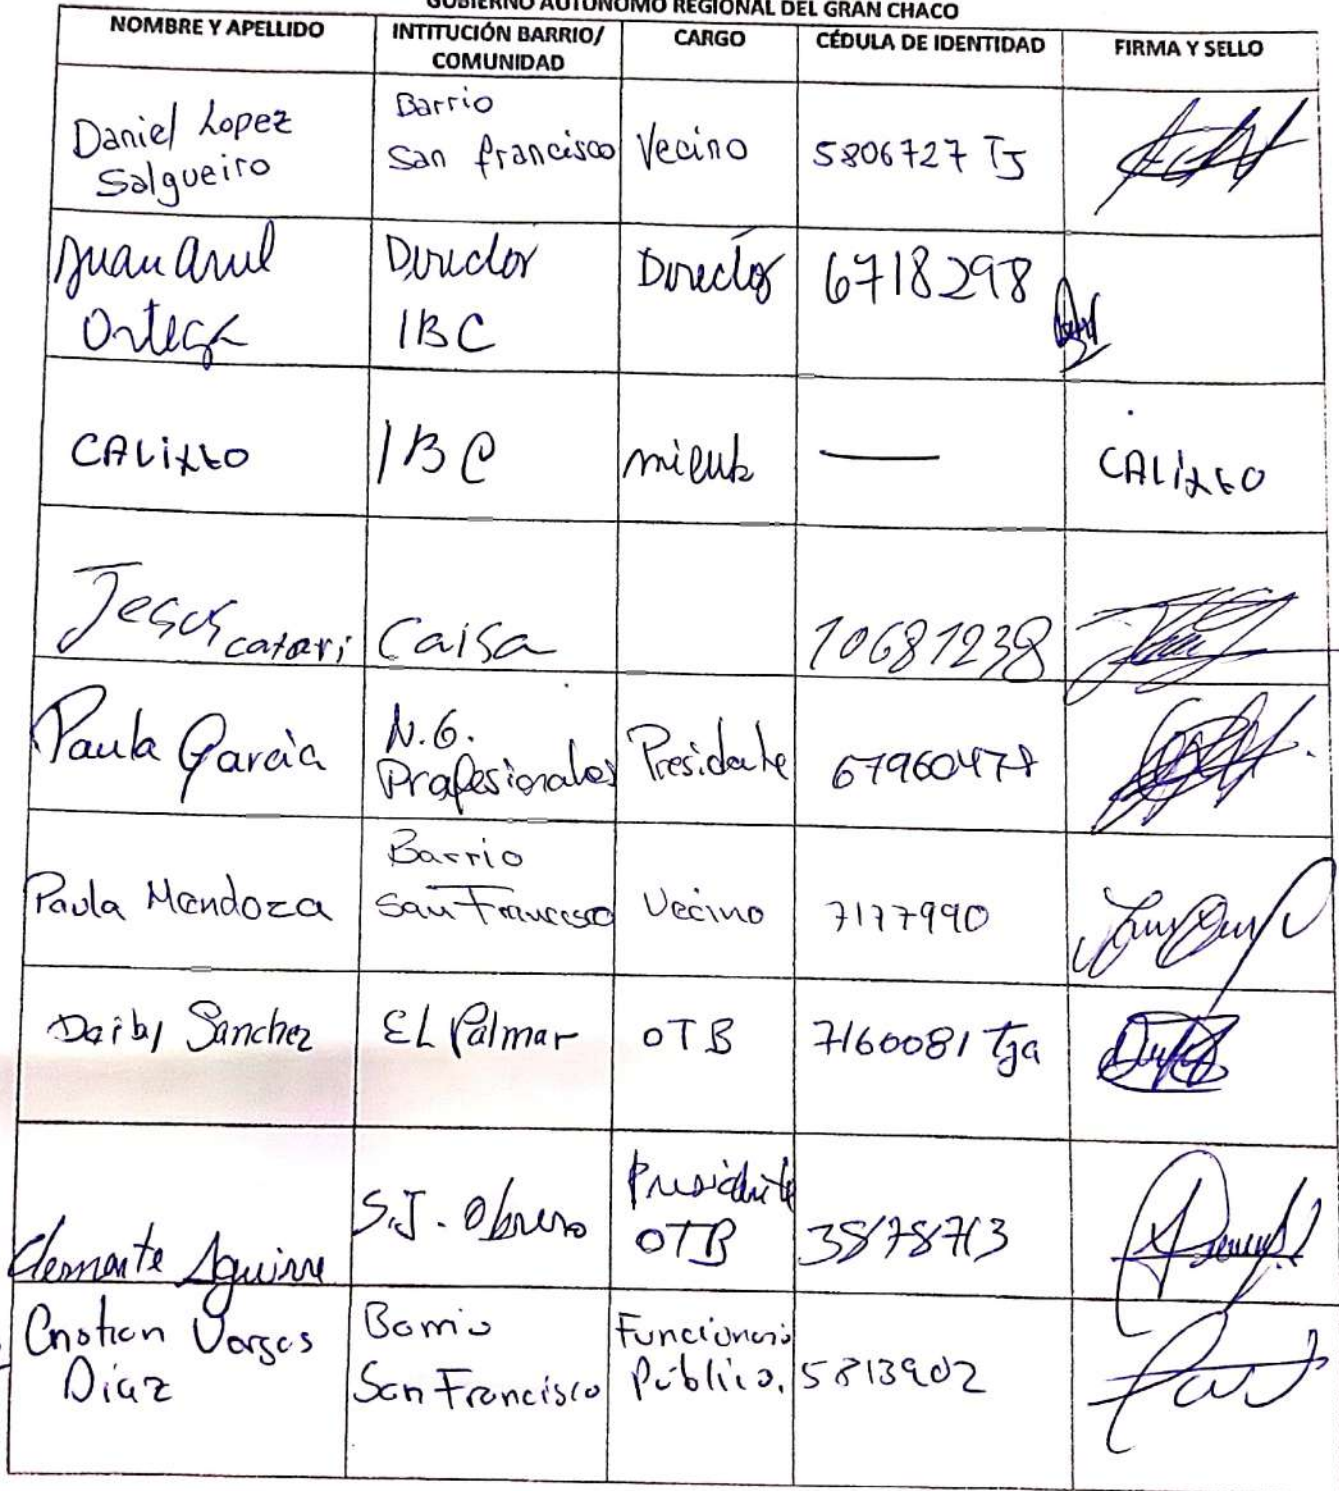 GOBIERNO AUTÓNOMO REGIONAL DEL GRAN CHACO
NOMBRE Y APELLIDO INTITUCIÓN BARRIO/ COMUNIDAD CARGO CÉDULA DE IDENTIDAD FIRMA Y SELLO
Daniel Lopez Salgueiro Barrio San francisco Vecino 5806727 TJ
Juan Ortega Director IBC Director 6718298
CALixto IBC — CALixto
Jesus catari Caisa 10681238
Paula Garcia N.G. Profesionales Presidente
Paula Mendoza Barrio San Francisco Vecino 7177990
Darby Sanchez EL Palmar OTB 7160081 Tja
Clemente Aguirre S.J. Obrero Presidente OTB
Cristian Vargas Diaz Barrio San Francisco Funcionario Público. 5813902